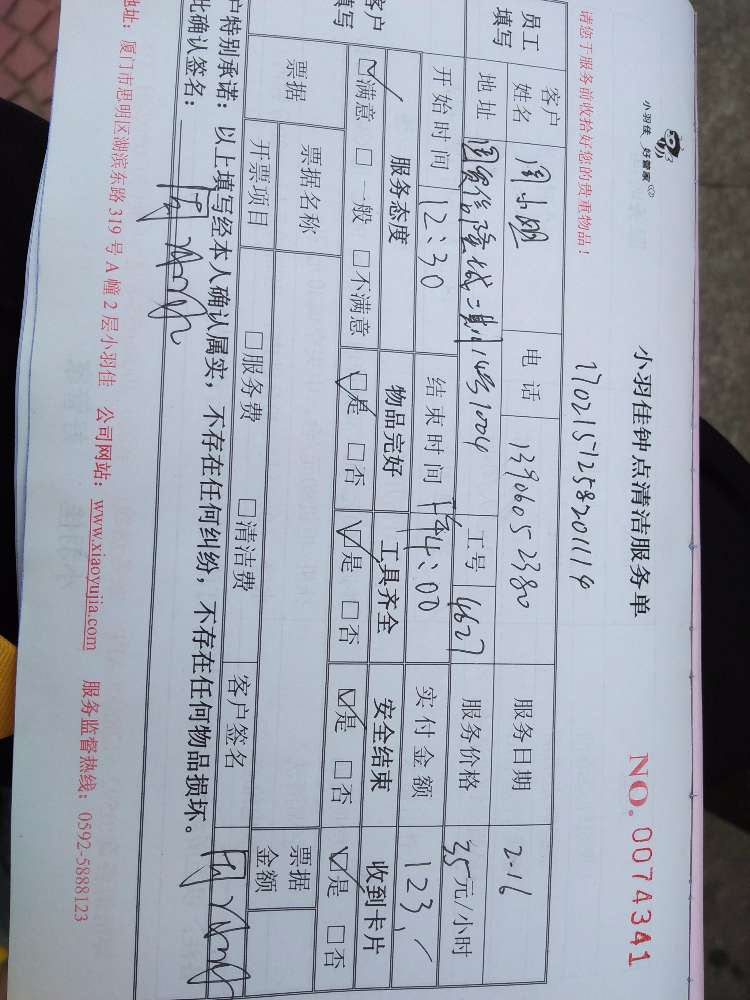 小羽佳 好管家
小羽佳钟点清洁服务单
NO. 0074341
请您于服务前收拾好您的贵重物品！
1702151258201114
员工填写
客户姓名 周小姐 电话 13906052380 服务日期 2-16
地址 国贸信隆城二期14号1004 工号 4627 服务价格 35元/小时
开始时间 12:30 结束时间 4:00 实付金额 123
客户填写
服务态度 物品完好 工具齐全 安全结束 收到卡片
☑满意 □一般 □不满意 ☑是 □否 ☑是 □否 ☑是 □否 ☑是 □否
票据 票据名称 票据金额
开票项目 □服务费 □清洁费 客户签名
户特别承诺：以上填写经本人确认属实，不存在任何纠纷，不存在任何物品损坏。
此确认签名：
地址：厦门市思明区湖滨东路 319 号 A 幢 2 层小羽佳 公司网站：www.xiaoyujia.com 服务监督热线：0592-5888123